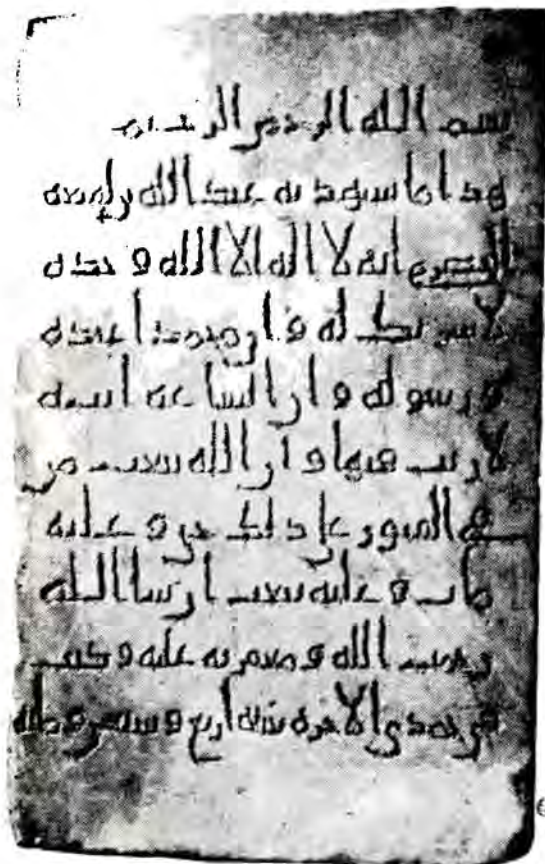 بسم الله الرحمن الرحيم
هذا ما شهد به عبد الله بن لهيعه
الحضرمي انه لا اله الا الله وحده
لا شريك له وان محمدا عبده
ورسوله وان الساعه اتيه
لا ريب فيها وان الله يبعث من
في القبور على ذلك حي وعليه
مات وعليه يبعث ان شا الله
رحمت الله ومغفرته عليه وكتب
في جمدى الاخره سنه اربع وسبعين ومائه